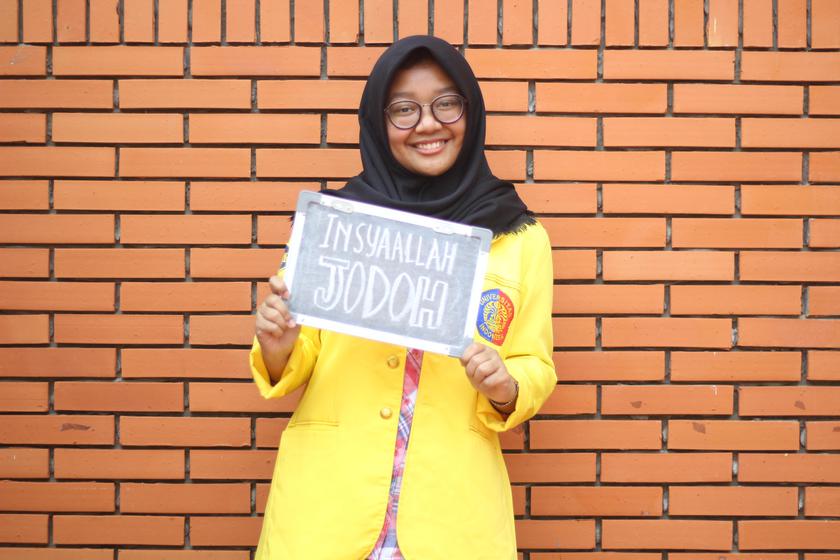 INSYAALLAH
JODOH
UNIVERSITAS
INDONESIA